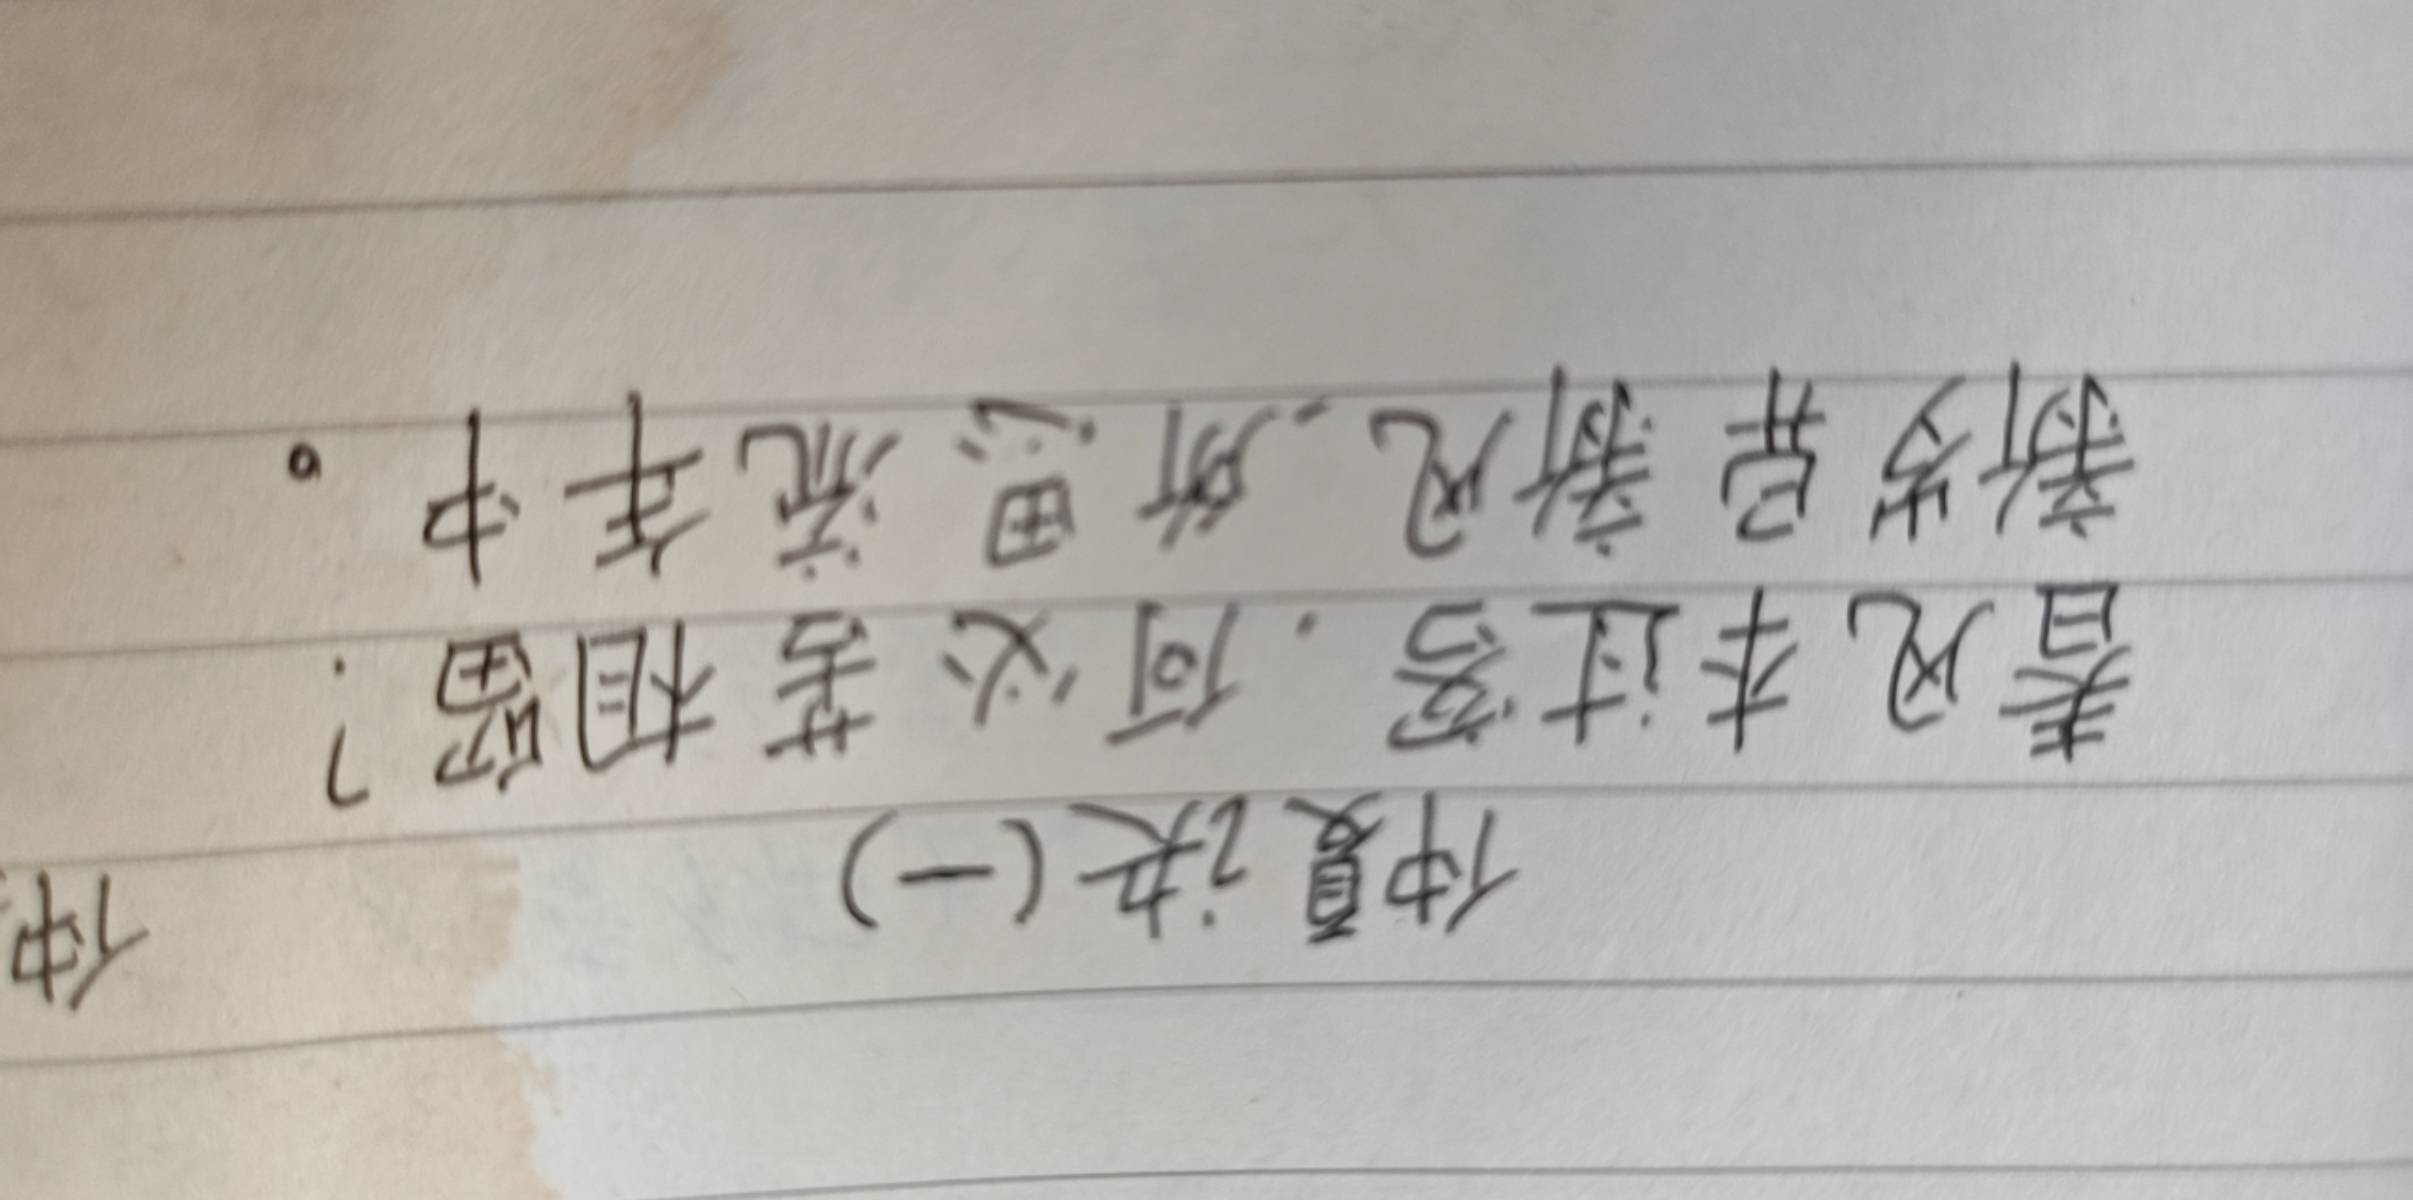 仲
仲夏诀(一)
春风本过客,何必苦相留?
新岁异新风,所思流年中。